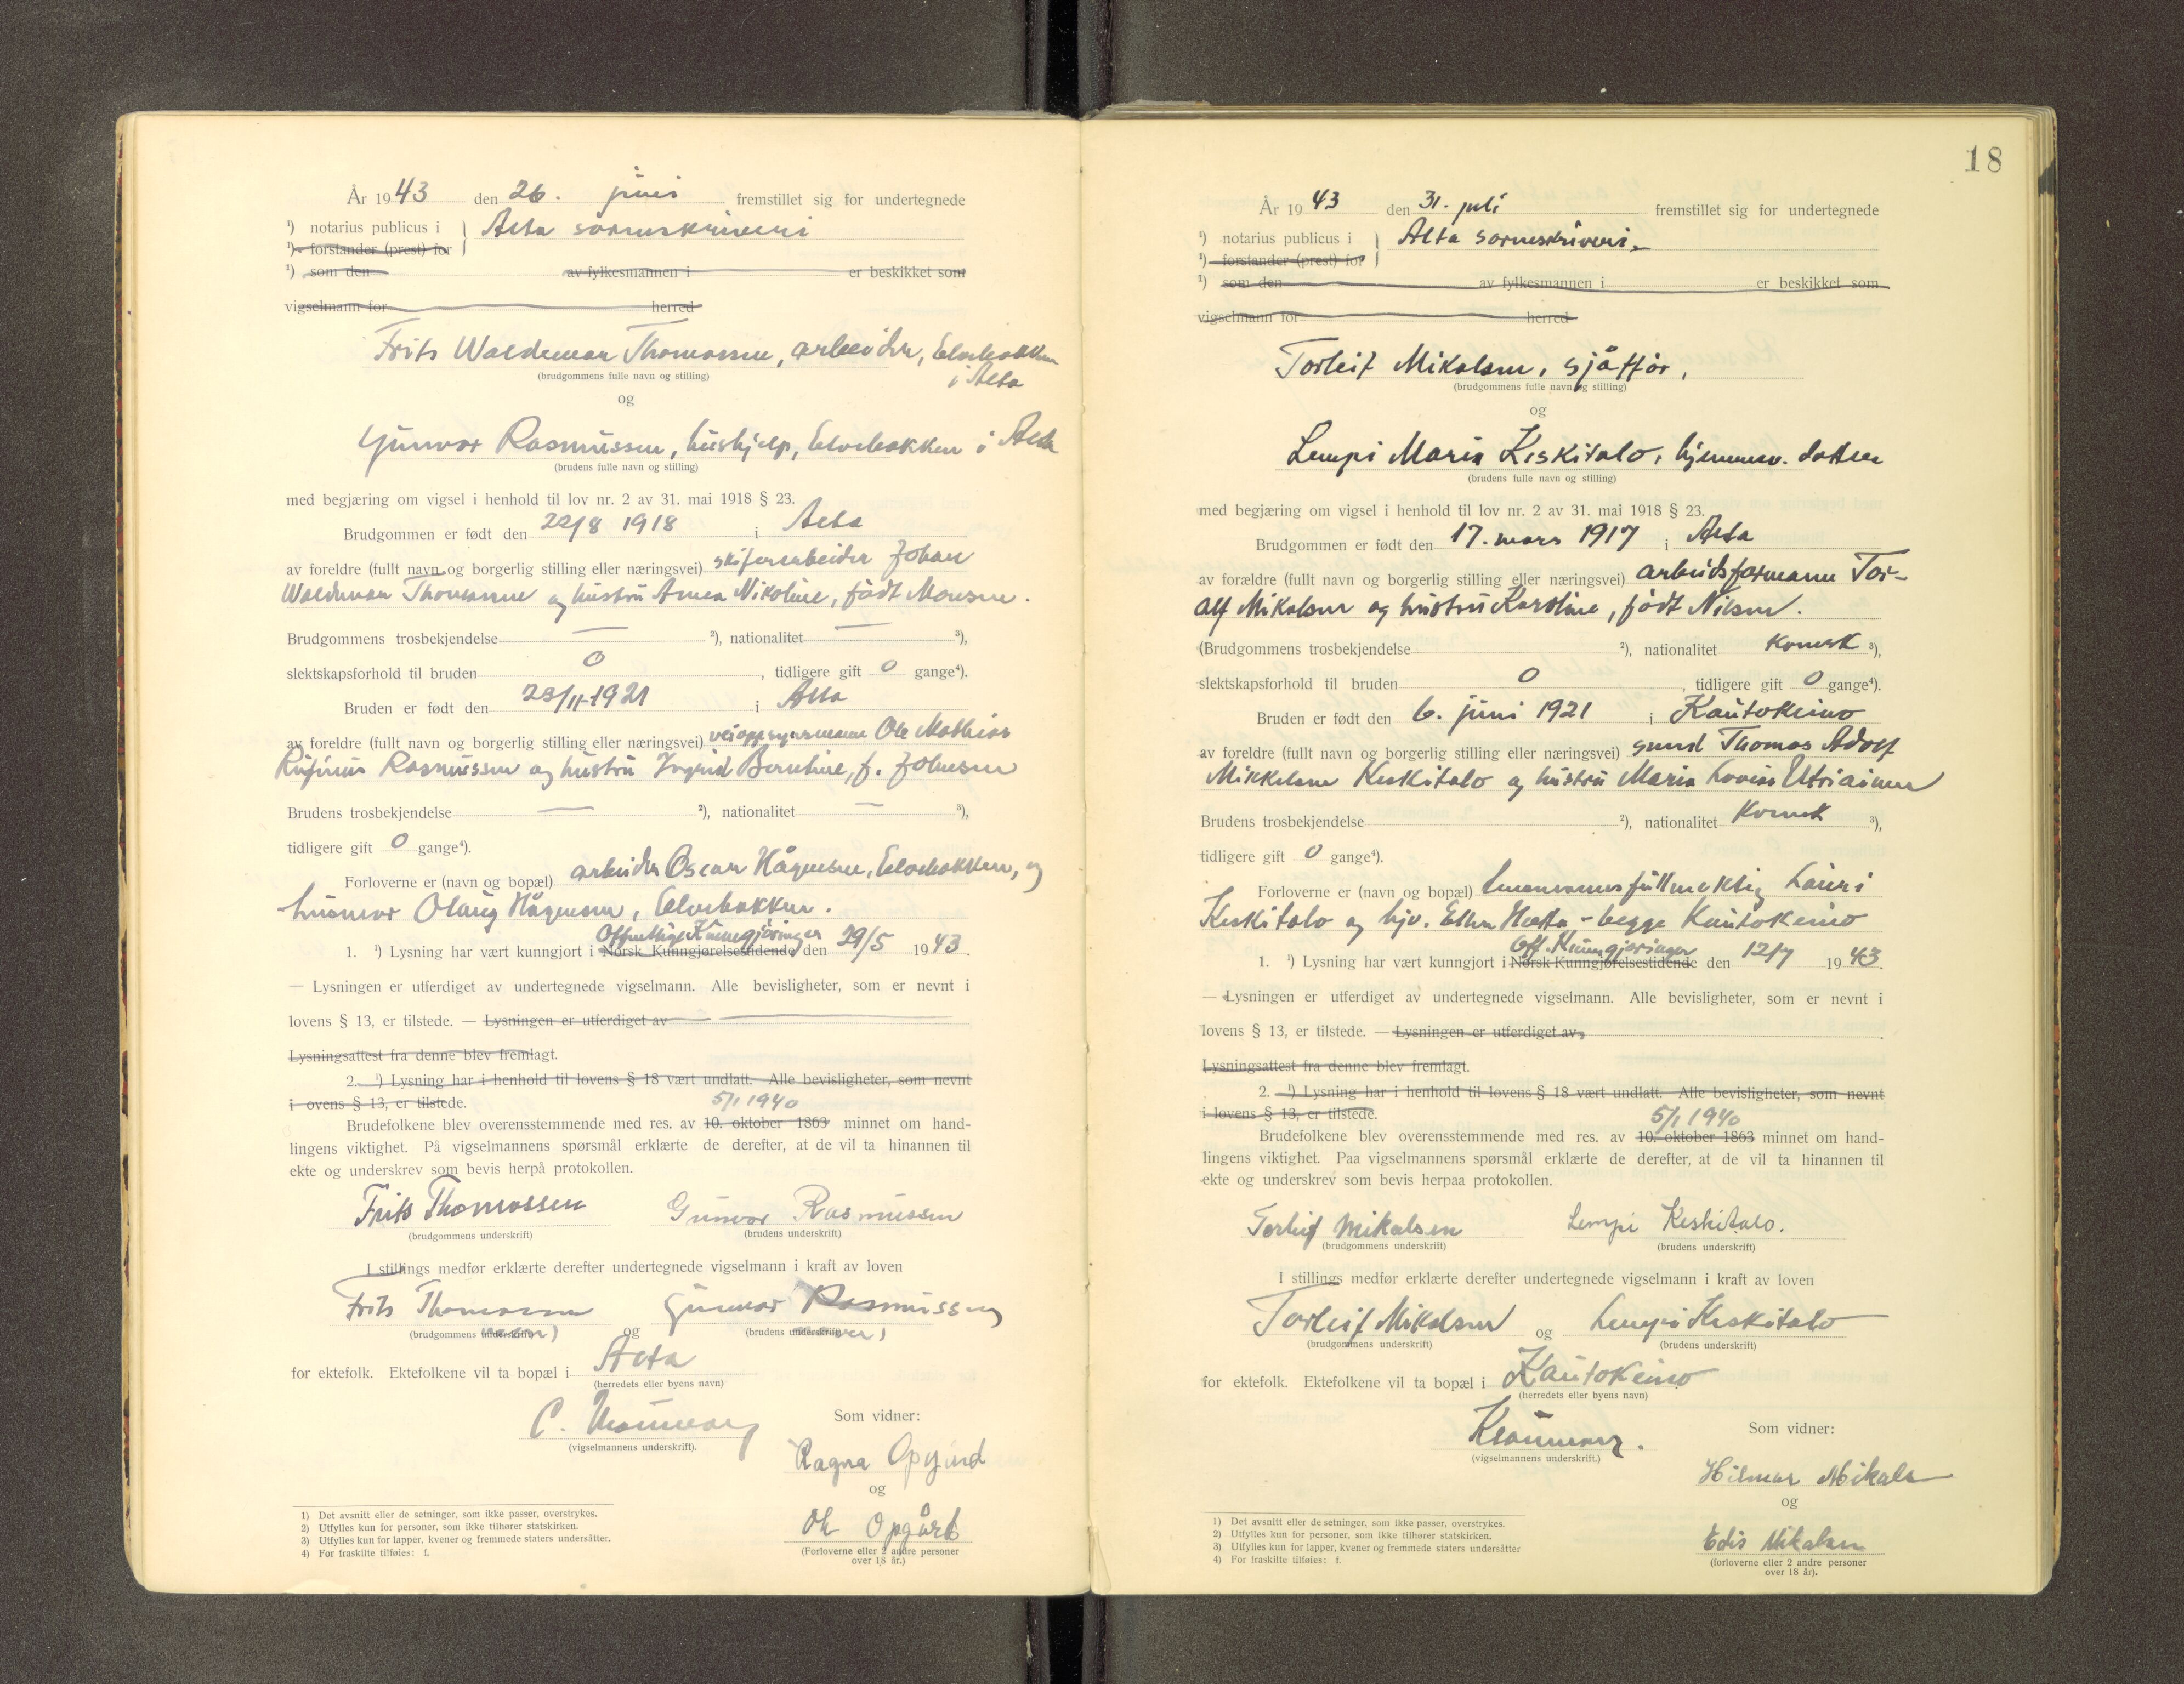 År 1943 den 26. juni fremstillet sig for undertegnede
¹) notarius publicus i } Alta sorenskriveri
¹) forstander (prest) for
¹) som den av fylkesmannen i er beskikket som
vigselmann for herred
Frits Waldemar Thomassen, arbeider, Elvebakken
i Alta
(brudgommens fulle navn og stilling)
og
Gunvor Rasmussen, hushjelp, Elvebakken i Alta
(brudens fulle navn og stilling)
med begjæring om vigsel i henhold til lov nr. 2 av 31. mai 1918 § 23.
Brudgommen er født den 22/8 1918 i Alta
av foreldre (fullt navn og borgerlig stilling eller næringsvei) skiferarbeider Johan
Waldemar Thomassen og hustru Anna Nikoline, født Monsen.
Brudgommens trosbekjendelse — ²), nationalitet — ³),
slektskapsforhold til bruden 0, tidligere gift 0 gange⁴).
Bruden er født den 23/11-1921 i Alta
av foreldre (fullt navn og borgerlig stilling eller næringsvei) veioppsynsmann Ole Mathias
Rufinus Rasmussen og hustru Ingrid Bernhine, f. Johnsen
Brudens trosbekjendelse — ²), nationalitet — ³),
tidligere gift 0 gange⁴).
Forloverne er (navn og bopæl) arbeider Oscar Hågensen, Elvebakken, og
husmor Olaug Hågensen, Elvebakken.
Offentlige Kunngjøringer
1. ¹) Lysning har vært kunngjort i Norsk Kunngjørelsestidende den 29/5 1943.
— Lysningen er utferdiget av undertegnede vigselmann. Alle bevisligheter, som er nevnt i
lovens § 13, er tilstede. — Lysningen er utferdiget av
Lysningsattest fra denne blev fremlagt.
2. ¹) Lysning har i henhold til lovens § 18 vært undlatt. Alle bevisligheter, som nevnt
i ovens § 13, er tilstede.
5/1 1940
Brudefolkene blev overensstemmende med res. av 10. oktober 1863 minnet om hand-
lingens viktighet. På vigselmannens spørsmål erklærte de derefter, at de vil ta hinannen til
ekte og underskrev som bevis herpå protokollen.
Frits Thomassen Gunvor Rasmussen
(brudgommens underskrift) (brudens underskrift)
I stillings medfør erklærte derefter undertegnede vigselmann i kraft av loven
Frits Thomassen og Gunvor Rasmussen
(brudgommens underskrift) navn) (brudens underskrift) navn)
for ektefolk. Ektefolkene vil ta bopæl i Alta
(herredets eller byens navn)
C.
(vigselmannens underskrift).
Som vidner:
Ragna Opgård
og
Ole Opgård
(Forloverne eller 2 andre personer
over 18 år.)
1) Det avsnitt eller de setninger, som ikke passer, overstrykes.
2) Utfylles kun for personer, som ikke tilhører statskirken.
3) Utfylles kun for lapper, kvener og fremmede staters undersåtter.
4) For fraskilte tilføies: f.
18
År 1943 den 31. juli fremstillet sig for undertegnede
¹) notarius publicus i } Alta sorenskriveri
¹) forstander (prest) for
¹) som den av fylkesmannen i er beskikket som
vigselmann for herred
Torleif Mikalsen, sjåffør,
(brudgommens fulle navn og stilling)
og
Lempi Maria Keskitalo, hjemmev. datter
(brudens fulle navn og stilling)
med begjæring om vigsel i henhold til lov nr. 2 av 31. mai 1918 § 23.
Brudgommen er født den 17. mars 1917 i Alta
av forældre (fullt navn og borgerlig stilling eller næringsvei) arbeidsformann Tor-
alf Mikalsen og hustru Karoline, født Nilsen.
(Brudgommens trosbekjendelse ²), nationalitet kvensk ³),
slektskapsforhold til bruden 0, tidligere gift 0 gange⁴).
Bruden er født den 6. juni 1921 i Kautokeino
av foreldre (fullt navn og borgerlig stilling eller næringsvei) smed Thomas Adolf
Mikkelsen Keskitalo og hustru Maria Lovisa Utriainen
Brudens trosbekjendelse ²), nationalitet kvensk ³),
tidligere gift 0 gange⁴).
Forloverne er (navn og bopæl) lensmannsfullmektig Lauri
Keskitalo og hjv. Ellen Hætta - begge Kautokeino
Off. Kunngjøringer
1. ¹) Lysning har vært kunngjort i Norsk Kunngjørelsestidende den 12/7 1943.
— Lysningen er utferdiget av undertegnede vigselmann. Alle bevisligheter, som er nevnt i
lovens § 13, er tilstede. — Lysningen er utferdiget av
Lysningsattest fra denne blev fremlagt.
2. ¹) Lysning har i henhold til lovens § 18 vært undlatt. Alle bevisligheter, som nevnt
i lovens § 13, er tilstede.
5/1 1940
Brudefolkene blev overensstemmende med res. av 10. oktober 1863 minnet om hand-
lingens viktighet. Paa vigselmannens spørsmål erklærte de derefter, at de vil ta hinannen til
ekte og underskrev som bevis herpaa protokollen.
Torleif Mikalsen Lempi Keskitalo.
(brudgommens underskrift) (brudens underskrift)
I stillings medfør erklærte derefter undertegnede vigselmann i kraft av loven
Torleif Mikalsen og Lempi Keskitalo
(brudgommens underskrift) (brudens underskrift)
for ektefolk. Ektefolkene vil ta bopæl i Kautokeino
(herredets eller byens navn)
(vigselmannens underskrift.)
Som vidner:
Hilmar Mikals
og
Edis Mikalsen
(forloverne eller 2 andre personer
over 18 år).
1) Det avsnitt eller de setninger, som ikke passer, overstrykes.
2) Utfylles kun for personer, som ikke tilhører statskirken.
3) Utfylles kun for lapper, kvener og fremmede staters undersåtter
4) For fraskilte tilføies: f.